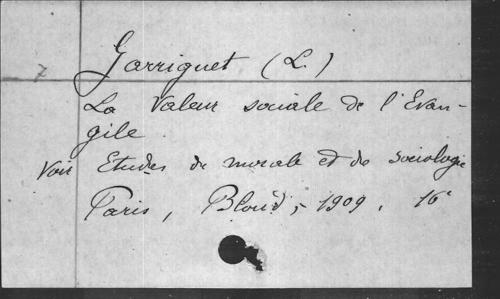 Garriguet (L.)
7
La Valeur sociale de l'Evan-
gile
Voir Etudes de morale et de sociologie
Paris, Bloud, 1909. 16°